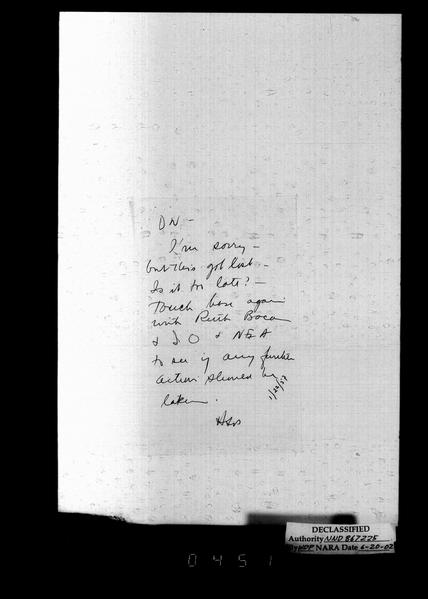 DN -
I'm sorry -
but this got lost -
Is it too late? -
Touch base again
with Ruth Bacon
& IO & NEA
to see if any further
action should be
taken.
1/22/57
DECLASSIFIED
Authority NND 867225
By WDP NARA Date 6-20-02
0451